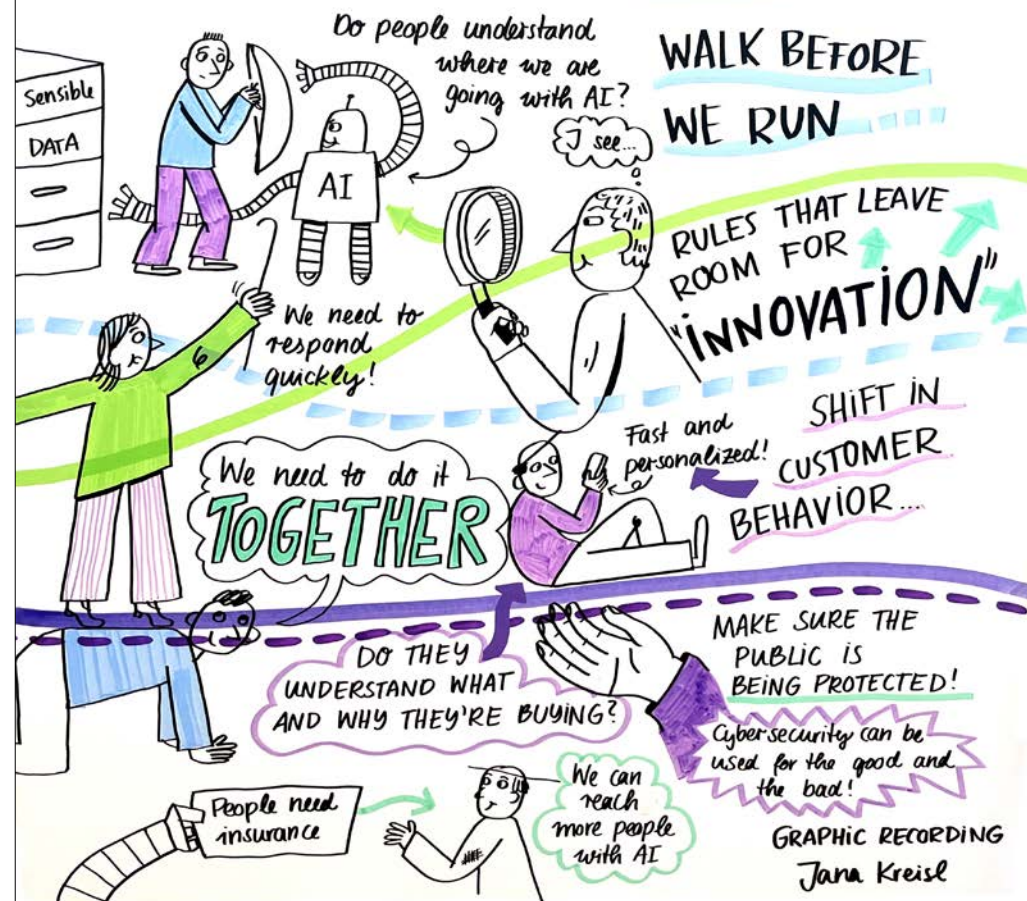 Sensible
DATA
Do people understand
where we are
going with AI?
AI
I see...
WALK BEFORE
WE RUN
RULES THAT LEAVE
ROOM FOR
"INNOVATION"
We need to
respond
quickly!
We need to do it
TOGETHER
Fast and
personalized!
SHIFT IN
CUSTOMER
BEHAVIOR...
DO THEY
UNDERSTAND WHAT
AND WHY THEY'RE BUYING?
MAKE SURE THE
PUBLIC IS
BEING PROTECTED!
Cybersecurity can be
used for the good and
the bad!
People need
insurance
We can
reach
more people
with AI
GRAPHIC RECORDING
Jana Kreisl